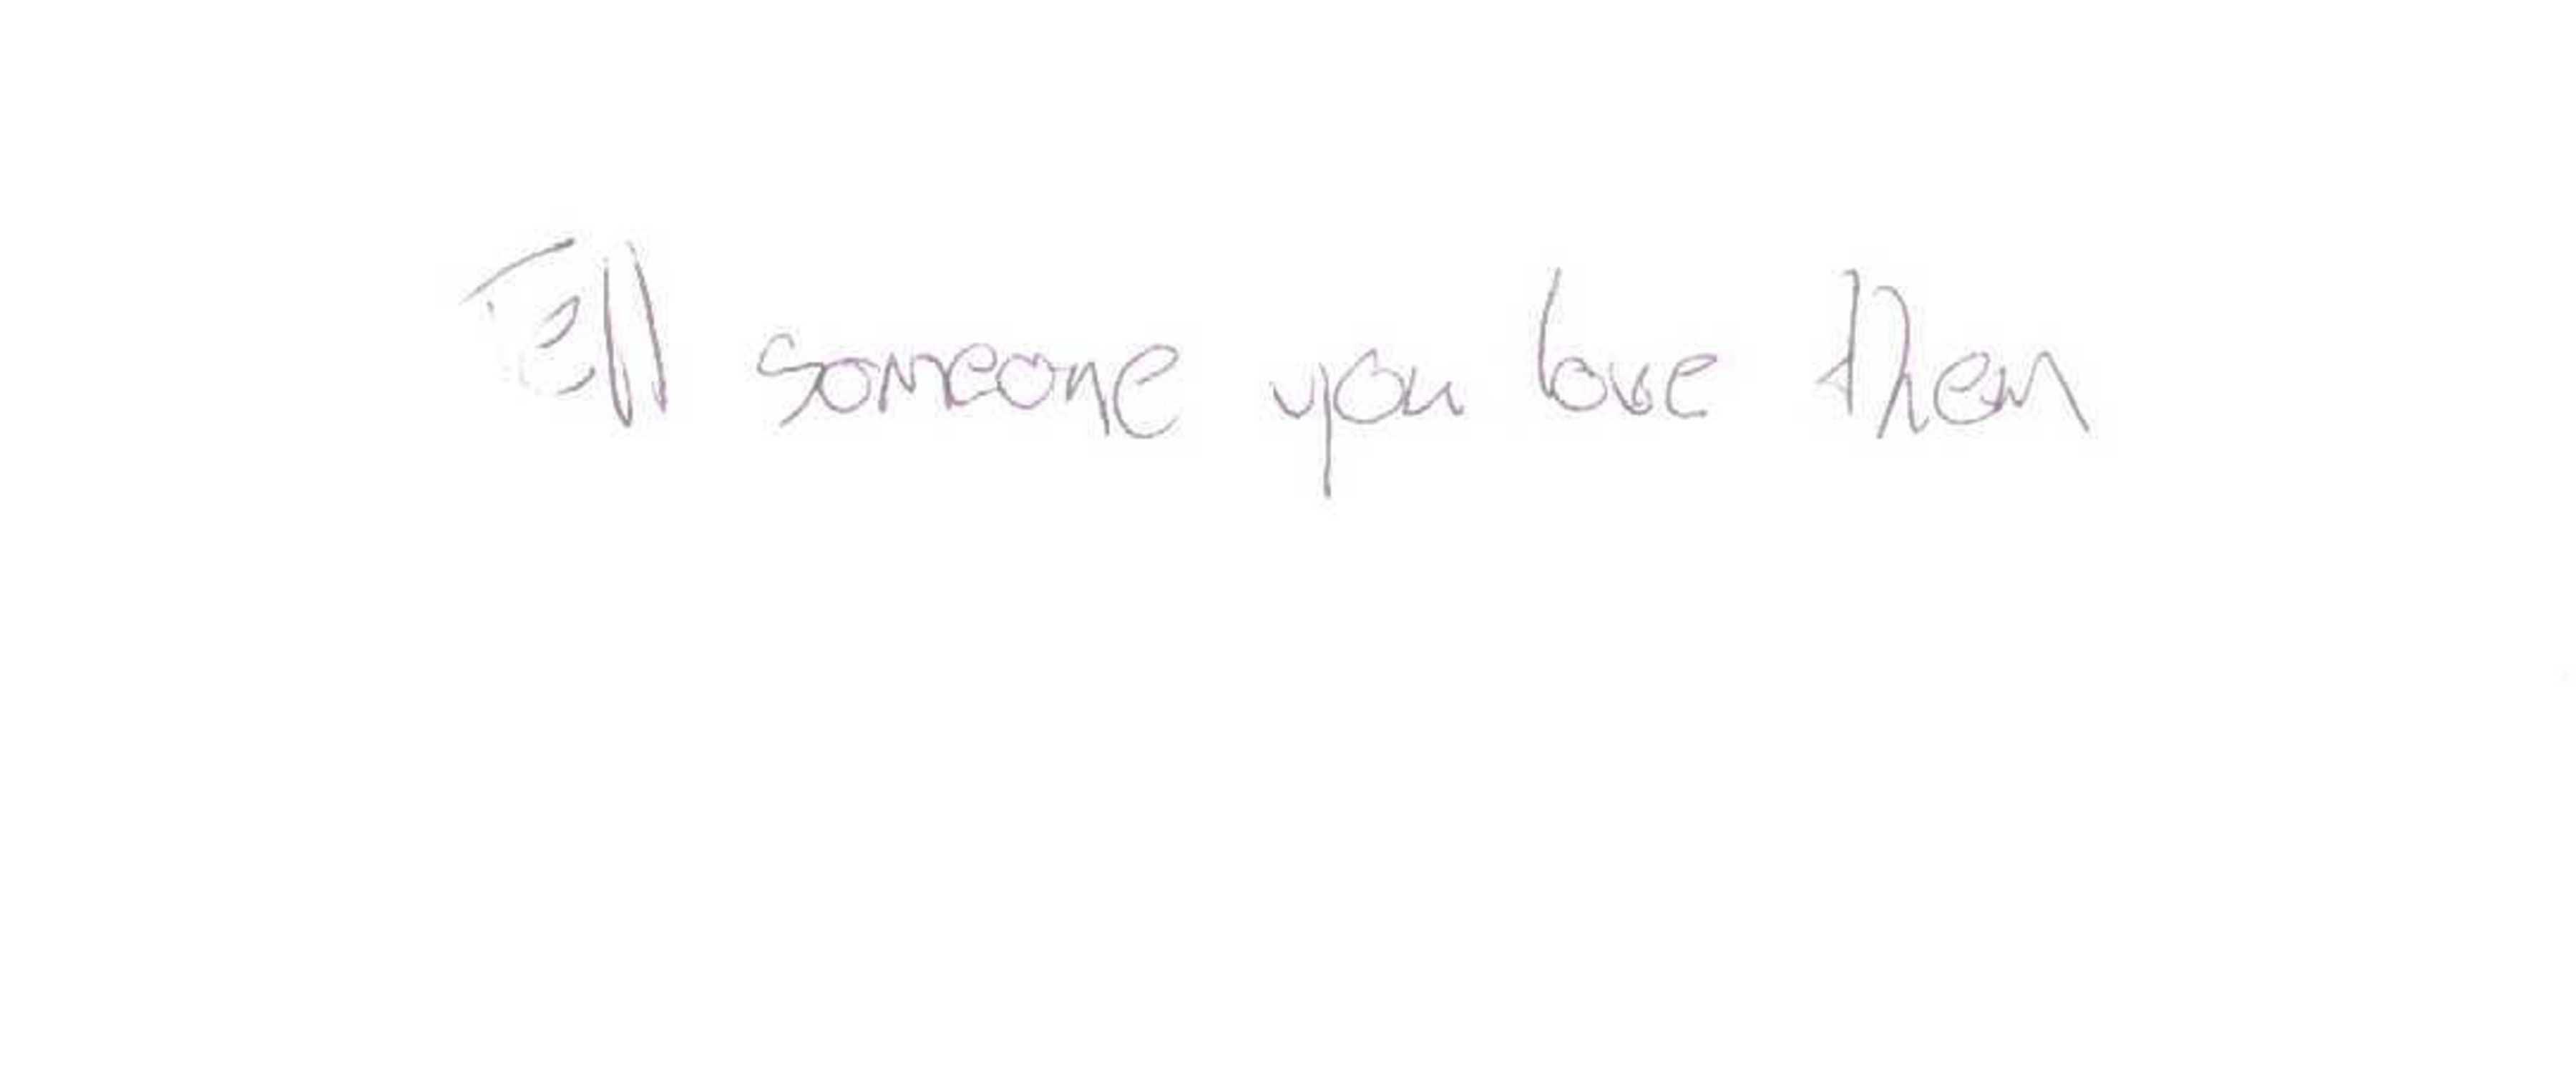 Tell someone you love them